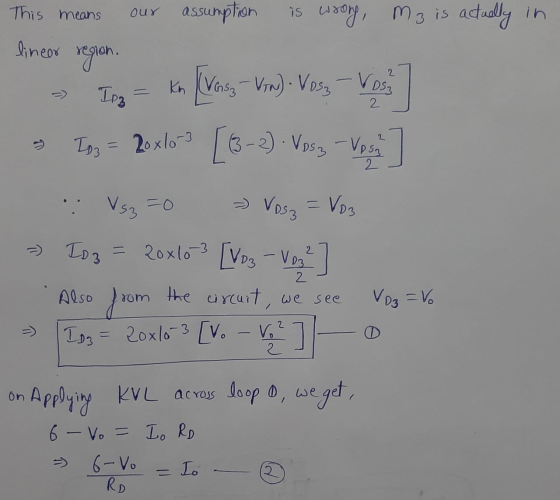 This means our assumption is wrong, M3 is actually in
linear region.
⇒ ID3 = Kn [(VGS3 − VTN) · VDS3 − VDS3²/2]
⇒ ID3 = 20×10⁻³ [(3−2) · VDS3 − VDS3²/2]
∵ VS3 = 0 ⇒ VDS3 = VD3
⇒ ID3 = 20×10⁻³ [VD3 − VD3²/2]
Also from the circuit, we see VD3 = Vo
⇒ ID3 = 20×10⁻³ [Vo − Vo²/2] — ①
on Applying KVL across loop ①, we get,
6 − Vo = Io RD
⇒ 6−Vo/RD = Io — ②